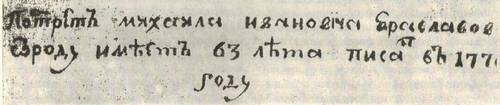 Потретъ михаила ивановича браславов
Ѿроду имѣетъ 63 лѣта писанъ въ 177
году